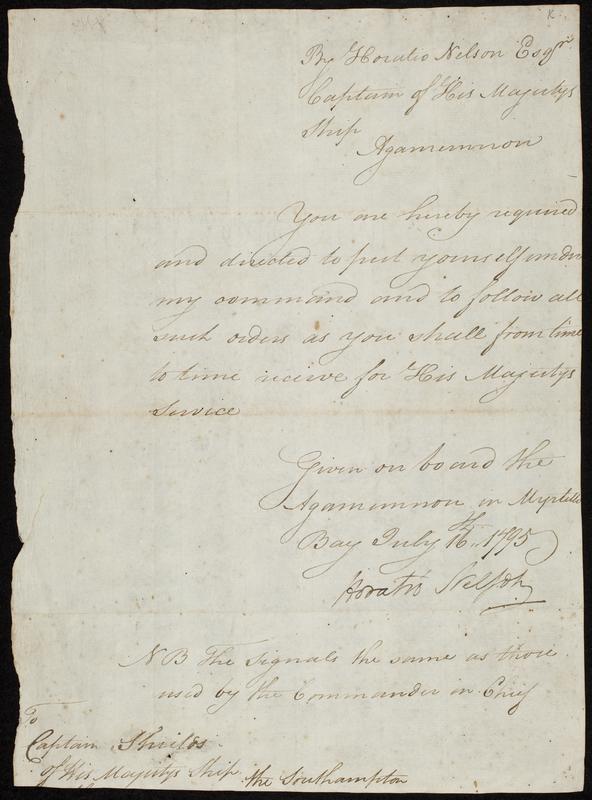 K
By Horatio Nelson Esqr
Captain of His Majestys
Ship
Agamemnon
You are hereby required
and directed to put yourself under
my command and to follow all
such orders as you shall from time
to time receive for His Majestys
Service
Given on board the
Agamemnon in Myrtillo
Bay July 16th 1795
Horatio Nelson
NB The Signals the same as those
used by the Commander in Chief
To
Captain Shields
of His Majestys Ship the Southampton